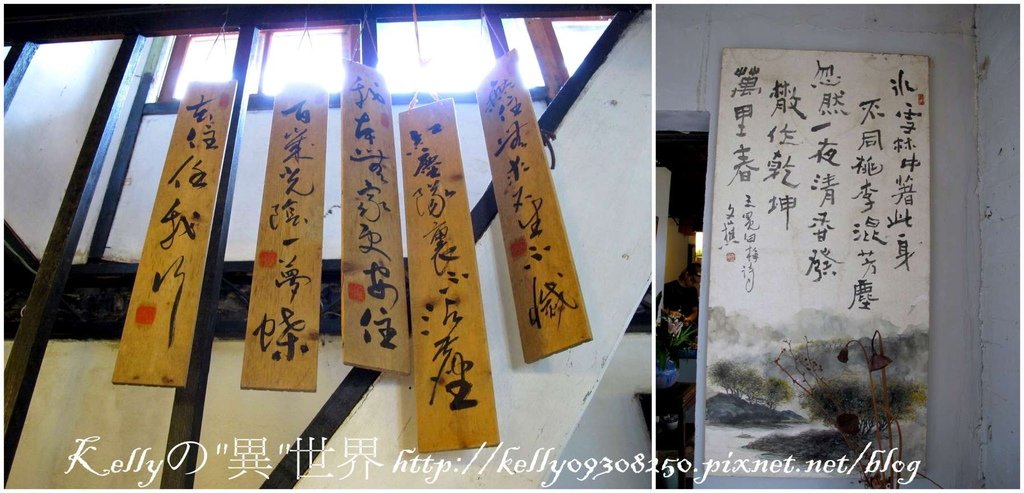 去住任我行
百歲光陰一夢蝶
我本無家更安住
紅塵隊裏不沾塵
冰雪林中著此身
不同桃李混芳塵
忽然一夜清香發
散作乾坤
萬里春
王冕白梅詩
Kellyの"異"世界 http://kelly09308250.pixnet.net/blog